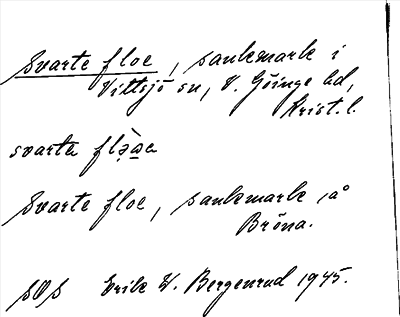 Svarte floe, sankmark i
Vittsjö sn, V. Göinge hd,
Krist. l.
svarta flə̀a̲
Svarte floe, sankmark å
Bröna.
SOS Erik W. Bergenrud 1945.